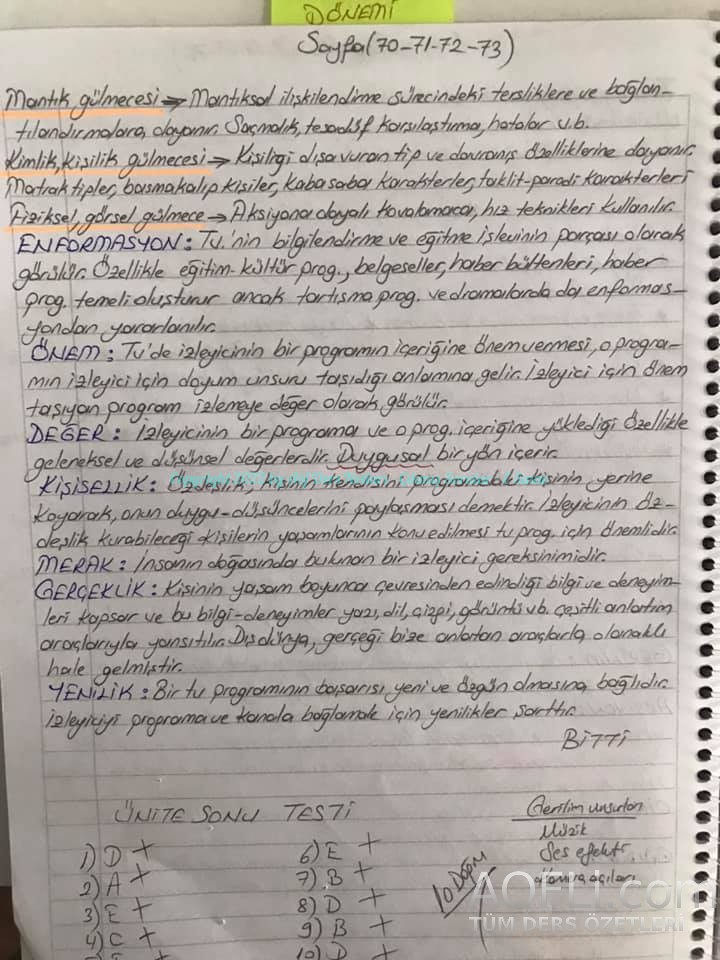 DÖNEMİ
Sayfa (70-71-72-73)
Mantık gülmecesi → Mantıksal ilişkilendirme sürecindeki tersliklere ve bağlan-
tılandırmalara dayanır. Saçmalık, tesadüf karşılaştırma, hatalar v.b.
Kimlik, kişilik gülmecesi → Kişiliği dışa vuran tip ve davranış özelliklerine dayanır.
Matrak tipler, basmakalıp kişiler, kaba saba karakterler, taklit-parodi karakterleri
Fiziksel, görsel gülmece → Aksiyona dayalı kovalamaca, hız teknikleri kullanılır.
ENFORMASYON: Tv.'nin bilgilendirme ve eğitme işlevinin parçası olarak
görülür. Özellikle eğitim-kültür prog., belgeseller, haber bültenleri, haber
prog. temeli oluşturur ancak tartışma prog. ve dramalarda da enformas-
yondan yararlanılır.
ÖNEM: Tv'de izleyicinin bir programın içeriğine önem vermesi, o progra-
mın izleyici için doyum unsuru taşıdığı anlamına gelir. İzleyici için önem
taşıyan program izlemeye değer olarak görülür.
DEĞER: İzleyicinin bir programa ve o prog. içeriğine yüklediği özellikle
geleneksel ve düşünsel değerlerdir. Duygusal bir yön içerir.
KİŞİSELLİK: Özdeşlik; kişinin kendisini programdaki kişinin yerine
koyarak, onun duygu-düşüncelerini paylaşması demektir. İzleyicinin öz-
deşlik kurabileceği kişilerin yaşamlarının konu edilmesi tv prog. için önemlidir.
MERAK: İnsanın doğasında bulunan bir izleyici gereksinimidir.
GERÇEKLİK: Kişinin yaşam boyunca çevresinden edindiği bilgi ve deneyim-
leri kapsar ve bu bilgi-deneyimler yazı, dil, çizgi, görüntü vb. çeşitli anlatım
araçlarıyla yansıtılır. Dış dünya, gerçeği bize anlatan araçlarla olanaklı
hale gelmiştir.
YENİLİK: Bir tv programının başarısı yeni ve özgün olmasına bağlıdır.
İzleyiciyi programa ve kanala bağlamak için yenilikler şarttır.
BİTTİ
ÜNİTE SONU TESTİ
1) D +
2) A +
3) E +
4) C +
6) E +
7) B +
8) D +
9) B +
10) D +
10 Doğru
Gerilim unsurları
Müzik
Ses efekti
Kamera açıları
AOFLI.com
TÜM DERS ÖZETLERİ